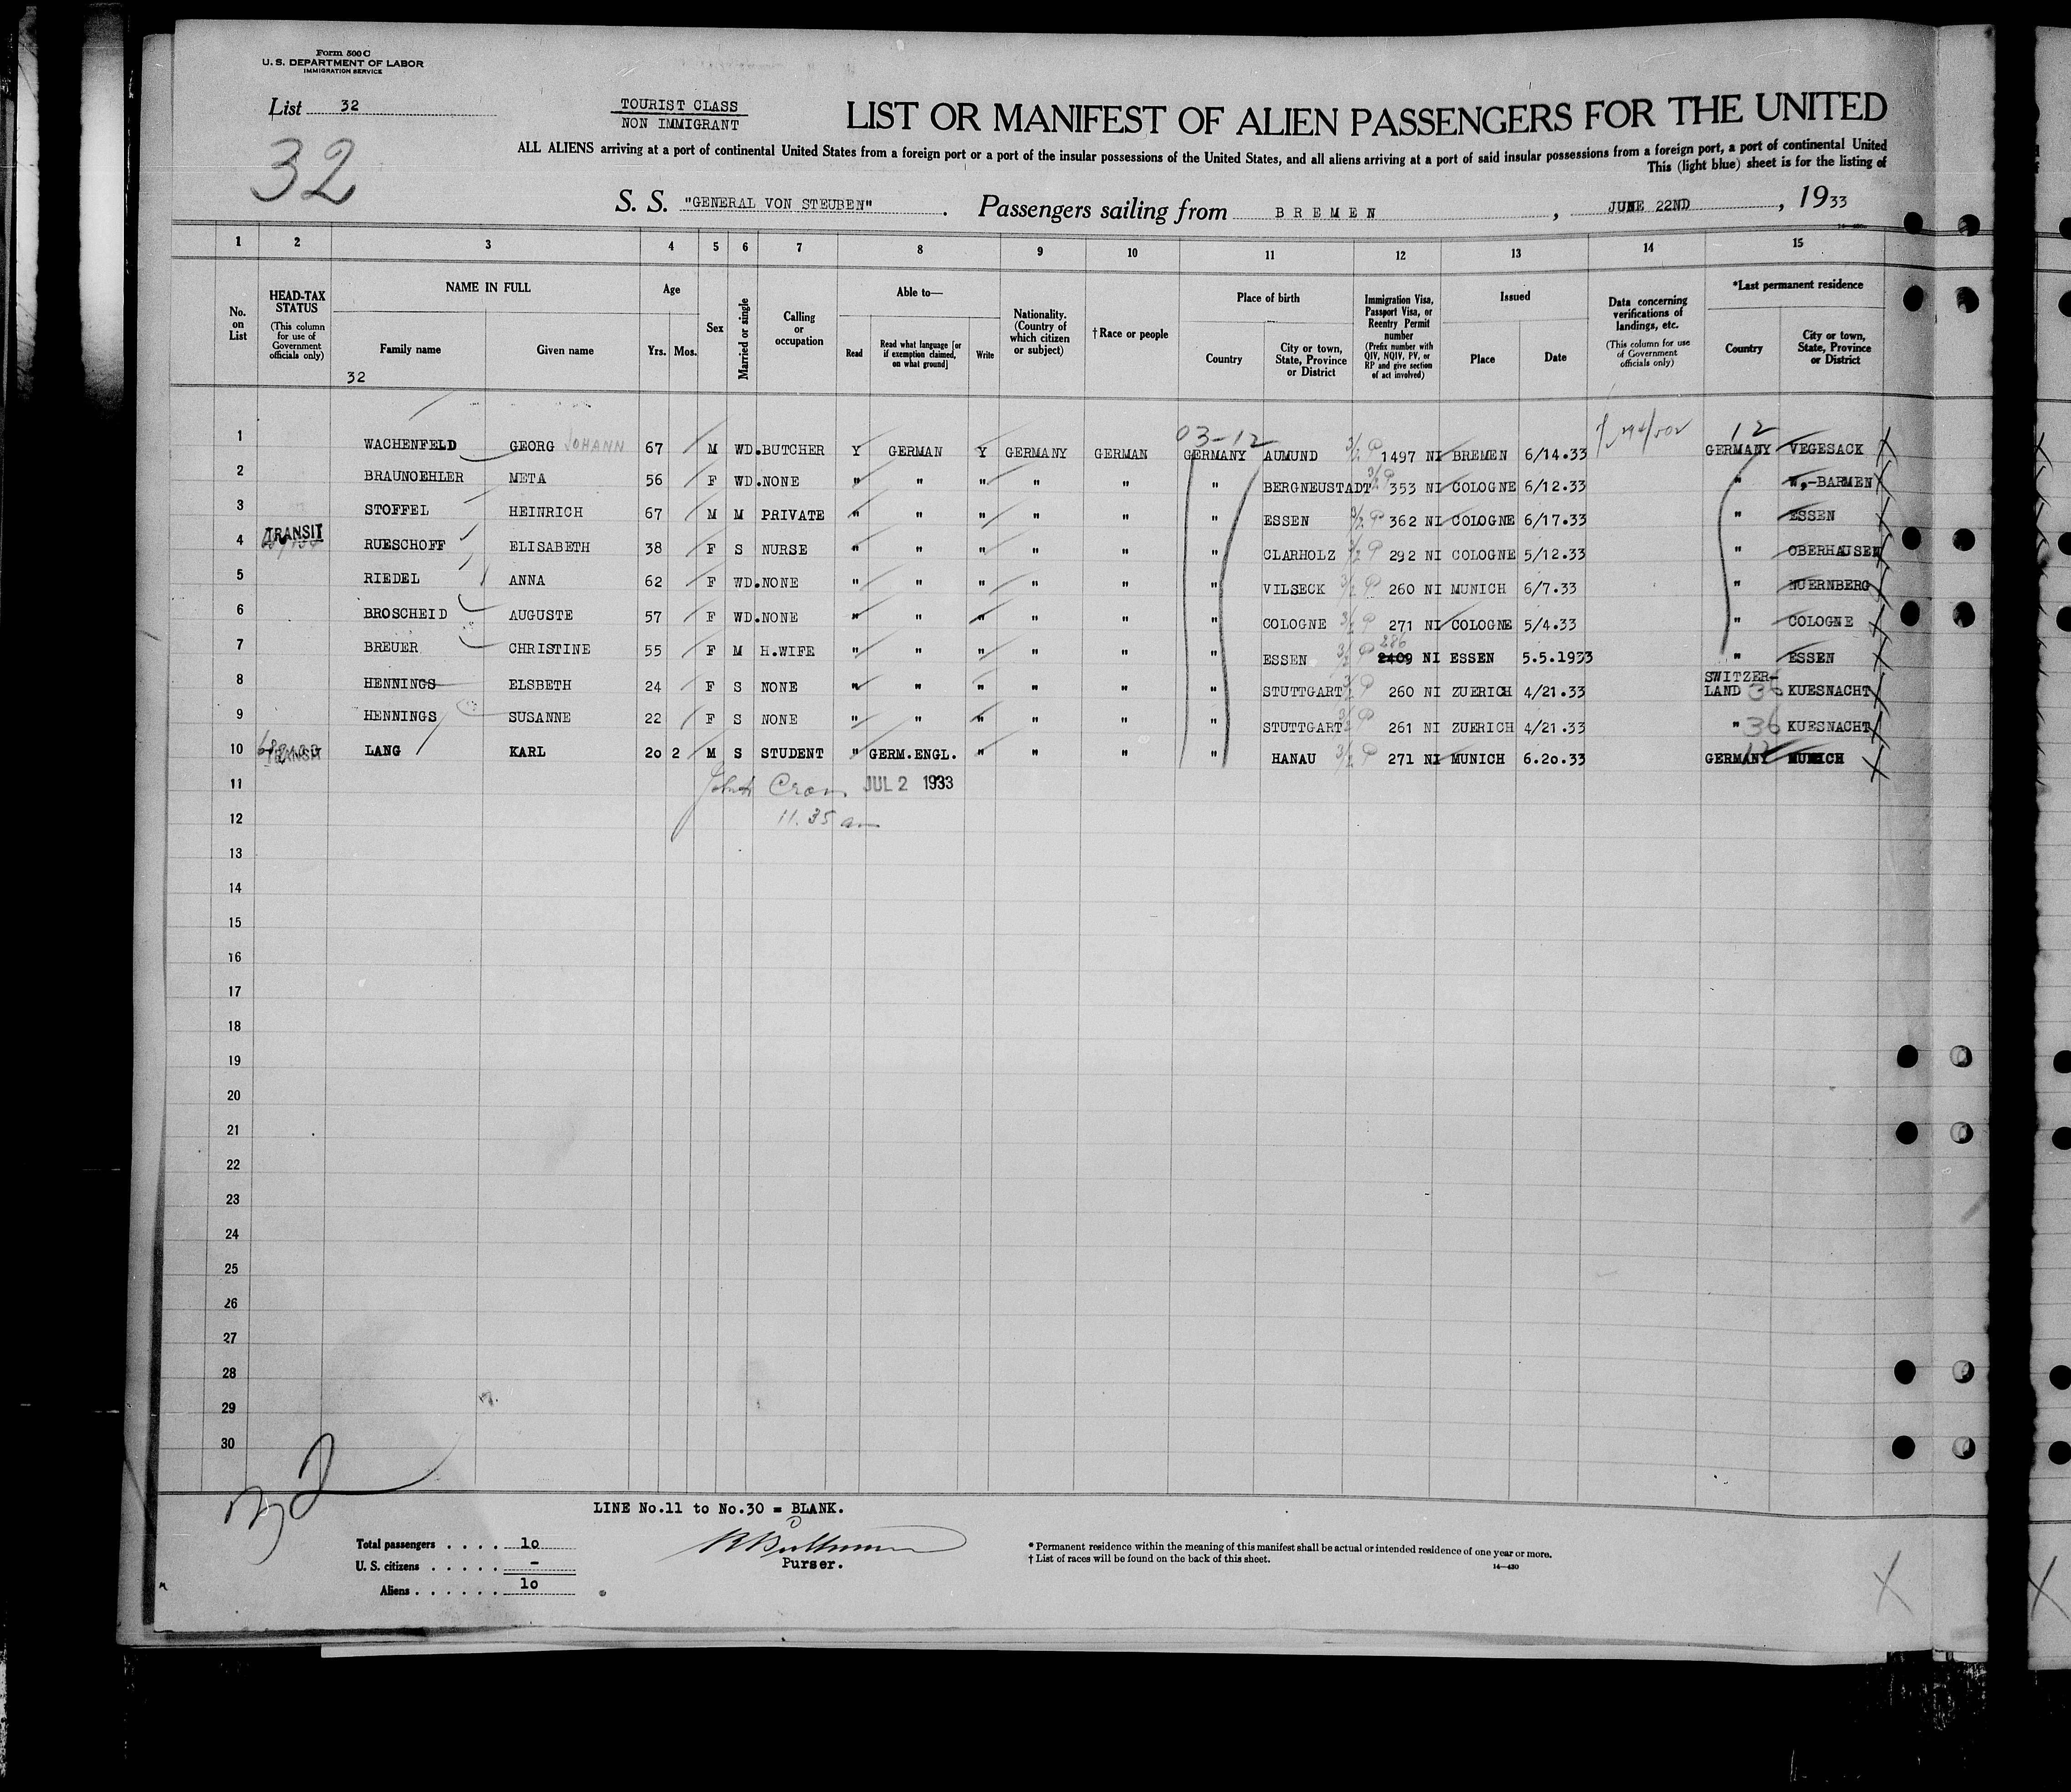 Form 500 C
U. S. DEPARTMENT OF LABOR
IMMIGRATION SERVICE
List 32
32
TOURIST CLASS
NON IMMIGRANT
LIST OR MANIFEST OF ALIEN PASSENGERS FOR THE UNITED
ALL ALIENS arriving at a port of continental United States from a foreign port or a port of the insular possessions of the United States, and all aliens arriving at a port of said insular possessions from a foreign port, a port of continental United
This (light blue) sheet is for the listing of
S. S. "GENERAL VON STEUBEN". Passengers sailing from BREMEN, JUNE 22ND, 1933
1 2 3 4 5 6 7 8 9 10 11 12 13 14 15
No. on List
HEAD-TAX STATUS (This column for use of Government officials only)
NAME IN FULL
Family name
Given name
32
Age
Yrs. Mos.
Sex
Married or single
Calling or occupation
Able to—
Read
Read what language [or if exemption claimed, on what ground]
Write
Nationality. (Country of which citizen or subject)
†Race or people
Place of birth
Country
City or town, State, Province or District
Immigration Visa, Passport Visa, or Reentry Permit number (Prefix number with QIV, NQIV, PV, or RP and give section of act involved)
Issued
Place
Date
Data concerning verifications of landings, etc. (This column for use of Government officials only)
*Last permanent residence
Country
City or town, State, Province or District
03-12
12
1 WACHENFELD GEORG JOHANN 67 M WD. BUTCHER Y GERMAN Y GERMANY GERMAN GERMANY AUMUND 3/2 P 1497 NI BREMEN 6/14.33 GERMANY VEGESACK X
2 BRAUNOEHLER META 56 F WD. NONE " " " " " " BERGNEUSTADT 3/2 P 353 NI COLOGNE 6/12.33 " W,-BARMEN X
3 STOFFEL HEINRICH 67 M M PRIVATE " " " " " " ESSEN 3/2 P 362 NI COLOGNE 6/17.33 " ESSEN X
4 TRANSIT RUESCHOFF ELISABETH 38 F S NURSE " " " " " " CLARHOLZ 3/2 P 292 NI COLOGNE 5/12.33 " OBERHAUSEN X
5 RIEDEL ANNA 62 F WD. NONE " " " " " " VILSECK 3/2 P 260 NI MUNICH 6/7.33 " NUERNBERG X
6 BROSCHEID AUGUSTE 57 F WD. NONE " " " " " " COLOGNE 3/2 P 271 NI COLOGNE 5/4.33 " COLOGNE X
7 BREUER CHRISTINE 55 F M H.WIFE " " " " " " ESSEN 3/2 P 286 2409 NI ESSEN 5.5.1933 " ESSEN X
8 HENNINGS ELSBETH 24 F S NONE " " " " " " STUTTGART 3/2 P 260 NI ZUERICH 4/21.33 SWITZER-LAND 36 KUESNACHT X
9 HENNINGS SUSANNE 22 F S NONE " " " " " " STUTTGART 3/2 P 261 NI ZUERICH 4/21.33 " 36 KUESNACHT X
10 TRANSIT LANG KARL 20 2 M S STUDENT " GERM.ENGL. " " " " HANAU 3/2 P 271 NI MUNICH 6.20.33 GERMANY 12 MUNICH X
11 JUL 2 1933
12 11.35 am
13
14
15
16
17
18
19
20
21
22
23
24
25
26
27
28
29
30
LINE No.11 to No.30 = BLANK.
Total passengers . . . . 10
U. S. citizens . . . . . -
Aliens . . . . . . 10
Purser.
* Permanent residence within the meaning of this manifest shall be actual or intended residence of one year or more.
† List of races will be found on the back of this sheet.
14—430
X X